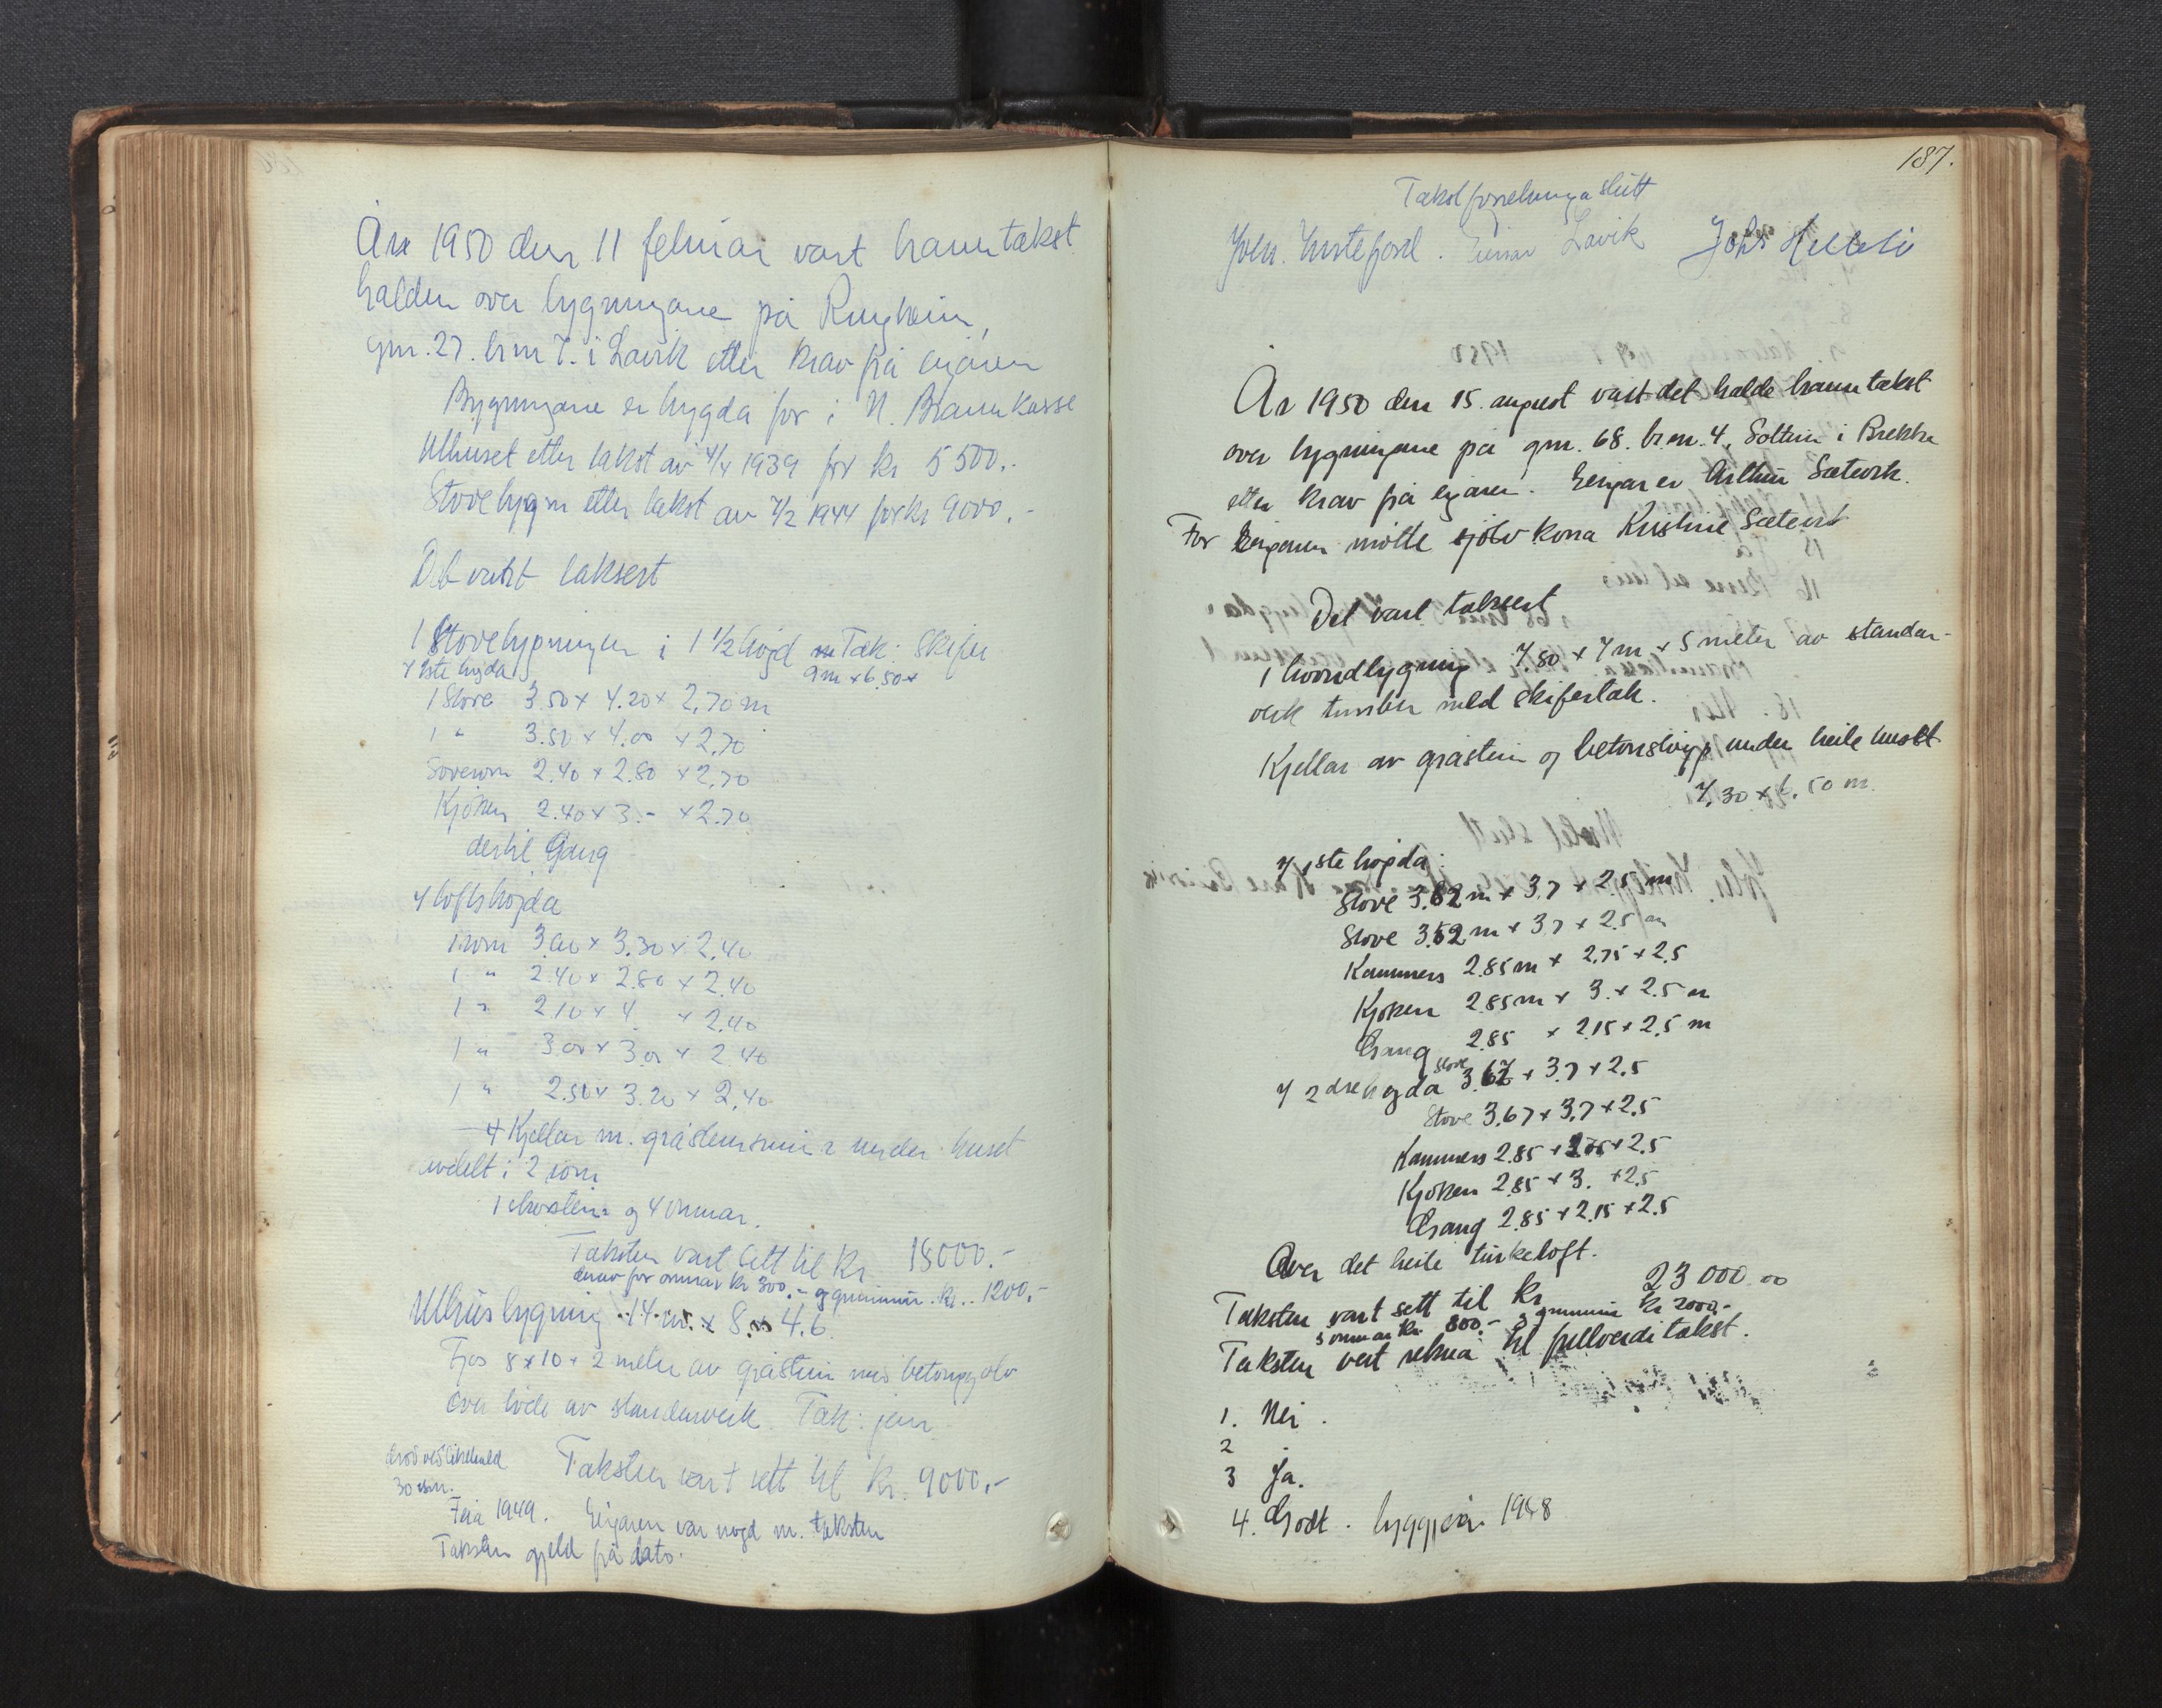 År 1950 den 11 februar vart branntakst
halden over bygningane på Ringheim,
gnr. 27. brnr 7. i Lavik etter krav frå eigaren
Bygningane er trygda før i N. Brannkasse
Uthuset etter takst av 4/4 1939 for kr 5500.-
Stovebygn etter takst av 7/2 1944 for kr 9000.-
Det vart taksert
1 Stovebygningen i 1 1/2 høgd Tak: Skifer
9m x 6.50 x
I 1ste høgda
1 Stove 3.50 x 4.20 x 2,70 m
1 " 3.50 x 4.00 x 2,70
Soverom 2.40 x 2.80 x 2,70
Kjøken 2.40 x 3.- x 2.70
dertil Gang
I loftshøgda
1 rom 3.00 x 3.30 x 2.40
1 " 2.40 x 2.80 x 2.40
1 " 2.10 x 4. x 2.40
1 " 3.00 x 3.00 x 2.40
1 " 2.50 x 3.20 x 2.40
Kjellar m. gråsteinsmur under huset
avdelt i 2 rom
1 skorstein og 4 omnar.
Taksten vart sett til kr 18000.-
derav for omnar kr 300.- og grunnmur. kr.. 1200.-
Uthusbygning 14 m. x 8 x 4.6
Fjøs 8 x 10 x 2 meter av gråstein med betonggolv
over løde av standerverk. Tak: jern
Taksten vart sett til kr. 9000.-
30 m.
Frå 1949. Eigaren var nøgd m. taksten
Taksten gjeld frå dato.
187.
Takstforretninga slutt
Johs. Gunnar Lavik Johs
År 1950 den 15. august vart det halde branntakst
over bygningane på gnr. 68. brnr. 4, Solheim i Brekke
etter krav frå eigaren. Eigar er Arthur Sætevik.
For Eigaren møtte sjølv kona Kristine Sætevik
Det vart taksert
1 hovudbygning 7.80 x 7 m x 5 meter av stander-
verk tømber med skifertak.
Kjellar av gråstein og betonstøyp under heile huset
7,30 x 6.50 m.
I 1ste høgda:
Stove 3.62 m x 3.7 x 2.5 m
Stove 3.52 m x 3.7 x 2.5 m
Kammers 2.85 m x 2.75 x 2.5
Kjøken 2.85 m x 3. x 2.5 m
Gang 2.85 x 2.15 x 2.5 m
I 2dre høgda stove 3.67 x 3.7 x 2.5
Stove 3.67 x 3.7 x 2.5
Kammers 2.85 x 2.75 x 2.5
Kjøken 2.85 x 3. x 2.5
Gang 2.85 x 2.15 x 2.5
Over det heile tørkeloft.
Taksten vart sett til kr 23 000.00
3 omnar kr. 800.- og grunnmur kr 2000.-
Taksten vert rekna til fullverditakst.
1. Nei.
2 -
3 Ja.
4. Godt. byggjeår 1948